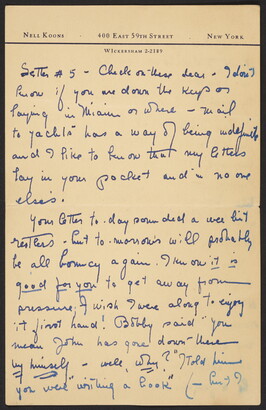 NELL KOONS · 400 EAST 59TH STREET · NEW YORK
WICKERSHAM 2-2189
Letter #5 - Check on these dear - I don't
know if you are down the Keys or
laying in Miami or where - mail
to yachts has a way of being indefinite
and I like to know that my letters
lay in your pocket and in no one
else's.
Your letter to-day sounded a wee bit
restless - but to-morrow's will probably
be all bouncy again. I know it is
good for you to get away from
pressure, I wish I were along to enjoy
it first hand! Bobby said "you
mean John has gone down there
by himself - well, why?" I told him
you were "writing a book" (- but?)